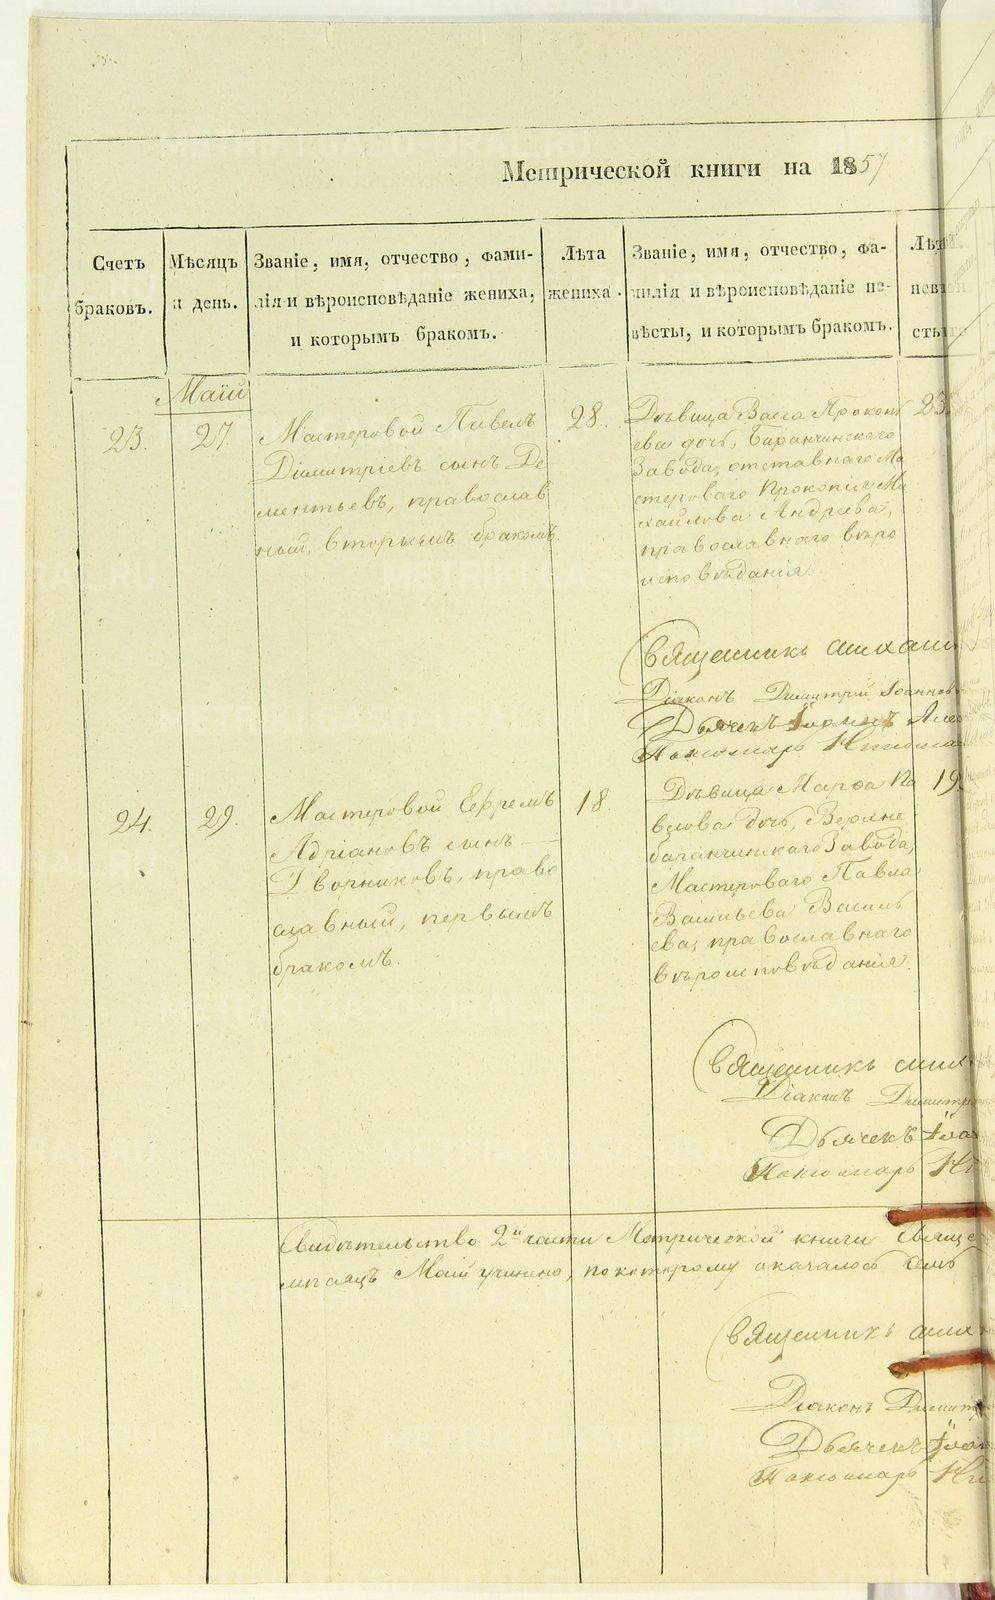 Метрической книги на 1857
Счетъ браковъ.
Мѣсяцъ и день.
Званіе, имя, отчество, фами-
лія и вѣроисповѣданіе жениха,
и которымъ бракомъ.
Лѣта
жениха.
Званіе, имя, отчество, фа-
милія и вѣроисповѣданіе не-
вѣсты, и которымъ бракомъ.
Лѣта
невѣ
сты
Маій
23. 27
Мастеровой Павелъ
Димитріевъ сынъ Де
ментьевъ, православ
ный, вторымъ бракомъ.
28.
Дѣвица Васса Прокопь
ева дочь, Баранчинскаго
Завода, отставнаго Ма
стероваго Прокопія Ми
хайлова Андреева,
православнаго вѣро
исповѣданія.
23.
Священникъ Миха
Діаконъ Димитрій Іоаннов
Дьячекъ Іоаннъ Але
Пономарь
24. 29.
Мастеровой Ефремъ
Адріановъ сынъ
Дворниковъ, право
славный, первымъ
бракомъ.
18.
Дѣвица Марѳа Па
велова дочь, Верхне
баранчинскаго Завода,
Мастероваго Павла
Васильева Василь
ева, православнаго
вѣроисповѣданія.
19.
Священникъ Мих
Діаконъ Димитрі
Дьячекъ Іоа
Пономарь
Свидѣтельство 2й части Метрической книги Свяще
мѣсяцъ Маій учинено, по которому оказалось
Священникъ Мих
Діаконъ Димитр
Дьячекъ Іоан
Пономарь
METRIKI.GASO-URAL.RU